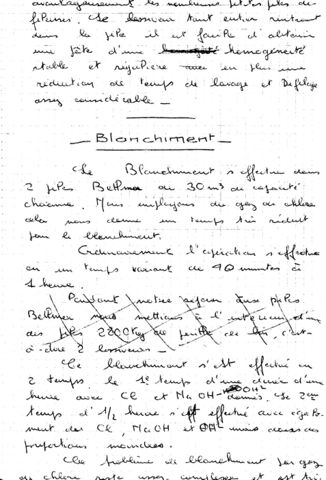 avantageusement les nombreuses petites piles dé-
fileuses. Le lessivau tout entier rentrant
dans la pile il est facile d'obtenir
une pâte d'une homogénéité
stable et régulière avec en plus une
réduction de temps de lavage et Défilage
assez considérable _
_ Blanchiment _
Le Blanchiment s'effectue dans
2 piles Bellmer de 30 m³ de capacité
chacune. Nous employons du gaz de chlore
cela nous donne un temps très réduit
pour le blanchiment.
Ordinairement l'opération s'effectue
en un temps variant de 40 minutes à
1 heure.
Pendant notre séjour dans piles
Bellmer nous mettions à l'intérieur d'un
des piles 2200 Kg de paille de c'est
à-dire 2 lessiveurs -
Le blanchiment s'est effectué en
2 temps, le 1er temps d'une durée d'une
heure avec Cl et Na OH Le 2ème
temps d'1/2 heure s'est effectué avec
de Cl, Na OH et mais dans des
proportions moindres.
Le problème de blanchiment par gaz
de chlore reste assez complexe et est très